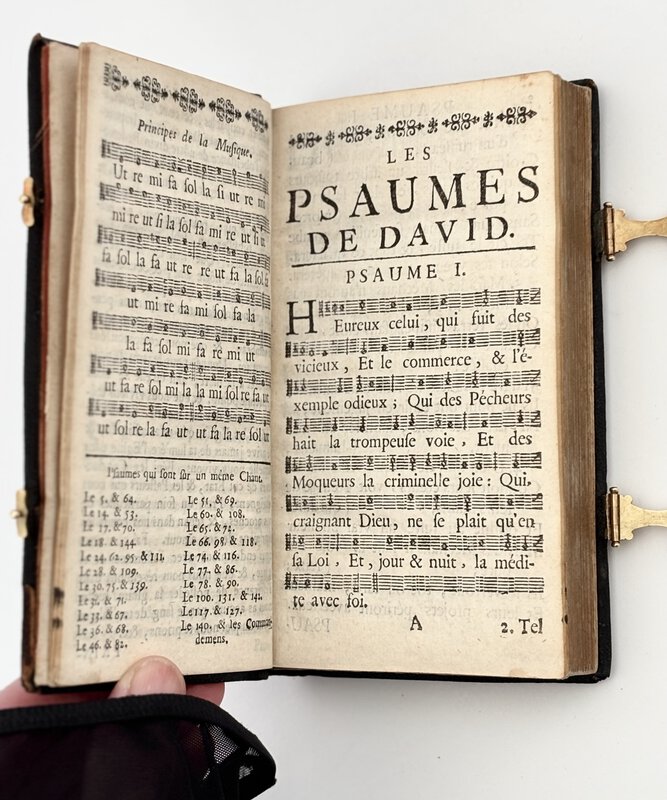 Principes de la Musique.
Ut re mi fa ſol la ſi ut re mi
mi re ut ſi la ſol fa mi re ut ſi ut
fa ſol la fa ut re re ut fa la ſol fa
ut mi re fa mi ſol fa la
la fa ſol mi fa re mi ut
ut fa re ſol mi la la mi ſol re fa ut
ut ſol re la fa ut ut fa la re ſol ut
Pſaumes qui ſont ſur un même Chant.
Le 5. & 64.
Le 14. & 53.
Le 17. & 70.
Le 18. & 144.
Le 24. 62. 95. & 111.
Le 28. & 109.
Le 30. 75. & 139.
Le 31. & 71.
Le 33. & 67.
Le 36. & 68.
Le 46. & 82.
Le 51. & 69.
Le 60. & 108.
Le 65. & 72.
Le 66. 98. & 118.
Le 74. & 116.
Le 77. & 86.
Le 78. & 90.
Le 100. 131. & 142.
Le 117 & 127.
Le 140. & les Comman-
demens.
LES
PSAUMES
DE DAVID.
PSAUME I.
HEureux celui, qui fuit des
vicieux, Et le commerce, & l'é-
xemple odieux; Qui des Pécheurs
hait la trompeuſe voie, Et des
Moqueurs la criminelle joie: Qui,
craignant Dieu, ne ſe plait qu'en
ſa Loi, Et, jour & nuit, la médi-
te avec foi.
A
2. Tel